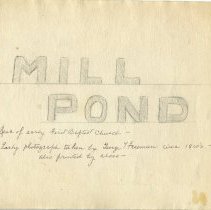 MILL
POND
of First Baptist Church -
Early photograph taken by Freeman circa 1860's -
also printed by